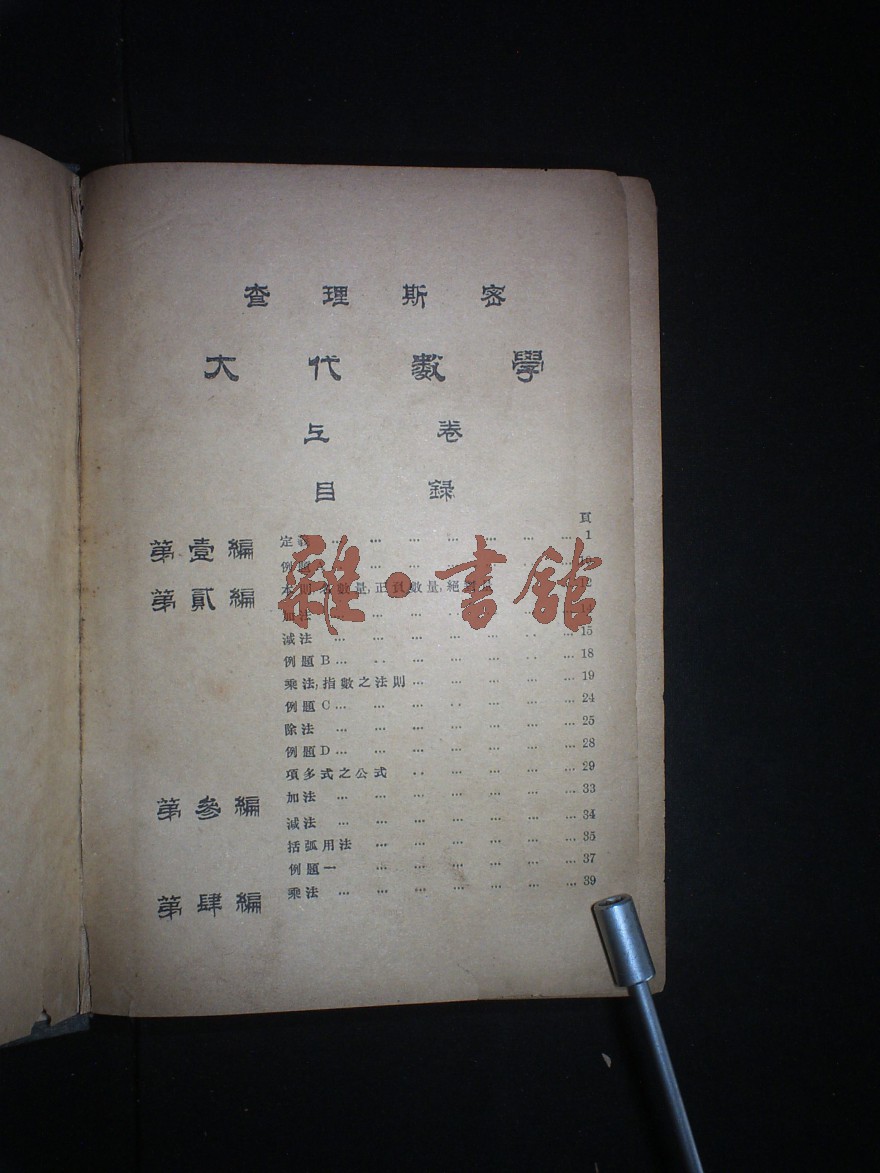 查理斯密
大代數學
上卷
目錄
頁
第壹編 定義 ... ... ... ... ... ... ... 1
例題A
第貳編 本則,負數量,正負數量,絕對値 12
雜·書館
加法
減法 ... ... ... ... .. ... 15
例題B... .. ... ... .. ... 18
乘法,指數之法則... ... ... ... ... 19
例題C... ... ... .. ... ... 24
除法 ... ... ... ... ... ... 25
例題D... ... ... ... ... ... 28
項多式之公式 .. ... ... ... 29
第參編 加法 ... ... ... ... ... ... 33
減法 ... ... ... ... ... ... 34
括弧用法 ... ... ... ... ... 35
例題一 ... ... ... ... ... 37
第肆編 乘法 ... ... ... ... ... ... 39